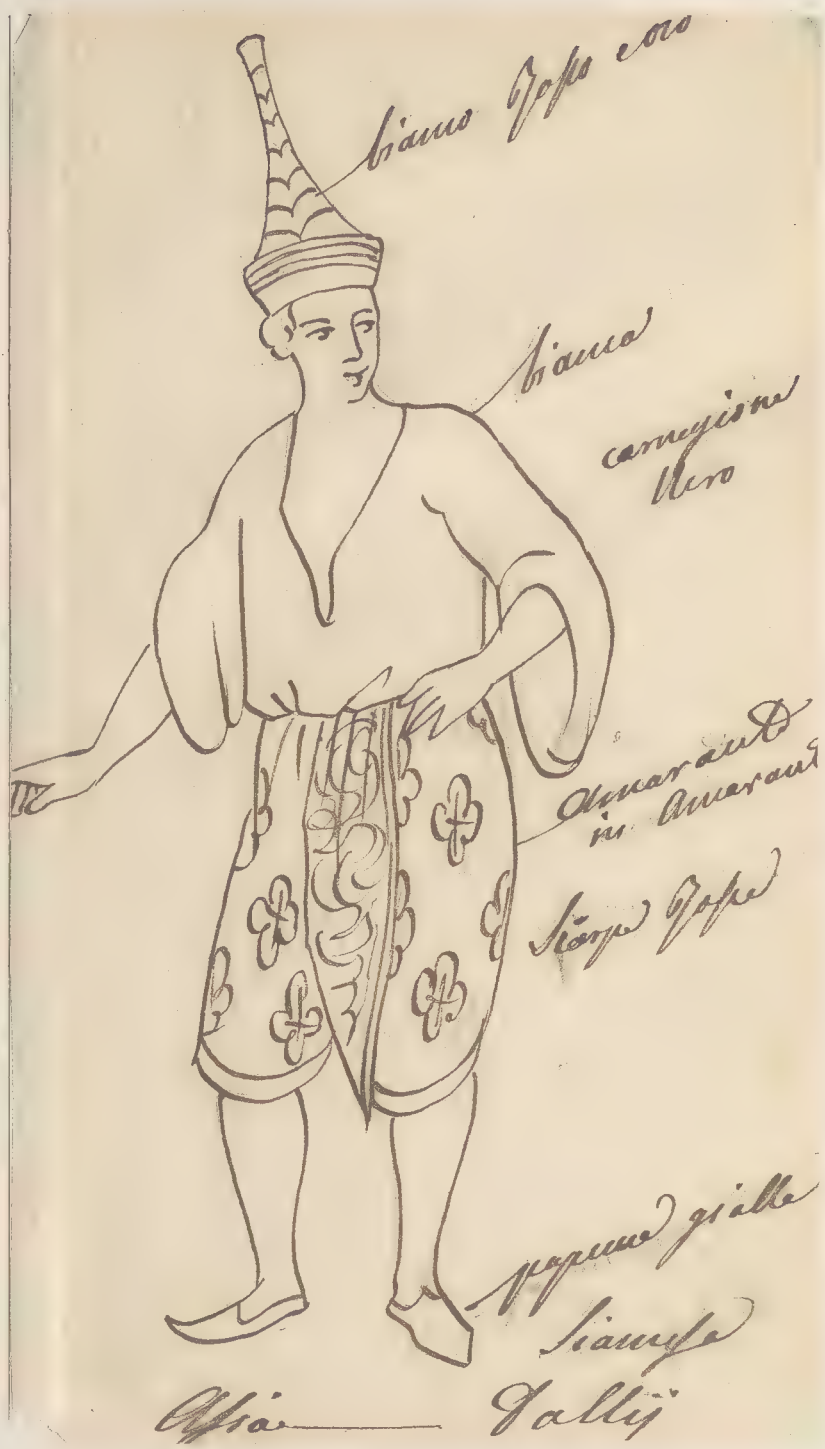 bianco Rosso e oro
bianca
carnegione
Nero
Amaranto
in Amarant
Siarpe Rosse
papuue gialle
Siamese
Assia Dallij